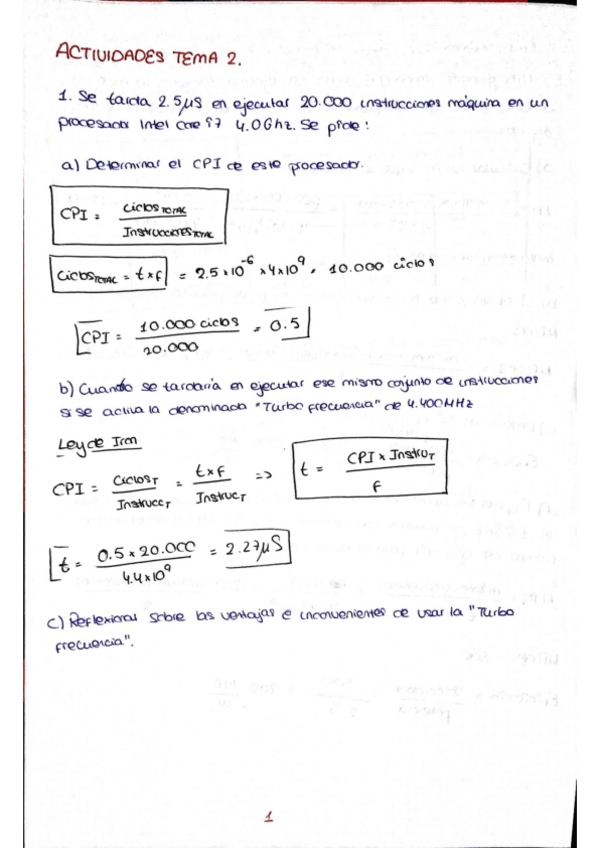 ACTIVIDADES TEMA 2.
1. Se tarda 2.5µs en ejecutar 20.000 instrucciones máquina en un
procesador Intel Core i7 4.0Ghz. Se pide:
a) Determinar el CPI de este procesador.
CPI = Ciclos TOTAL / Instrucciones TOTAL
Ciclos TOTAL = t x f = 2.5 x 10^-6 x 4 x 10^9 = 10.000 ciclos
CPI = 10.000 ciclos / 20.000 = 0.5
b) Cuanto se tardaría en ejecutar ese mismo conjunto de instrucciones
si se activa la denominada "Turbo frecuencia" de 4.400MHz
Ley de Iron
CPI = Ciclos T / Instrucc T = t x f / Instruc T => t = CPI x Instruc T / F
t = 0.5 x 20.000 / 4.4 x 10^9 = 2.27µS
c) Reflexionar sobre las ventajas e inconvenientes de usar la "Turbo
frecuencia".
1